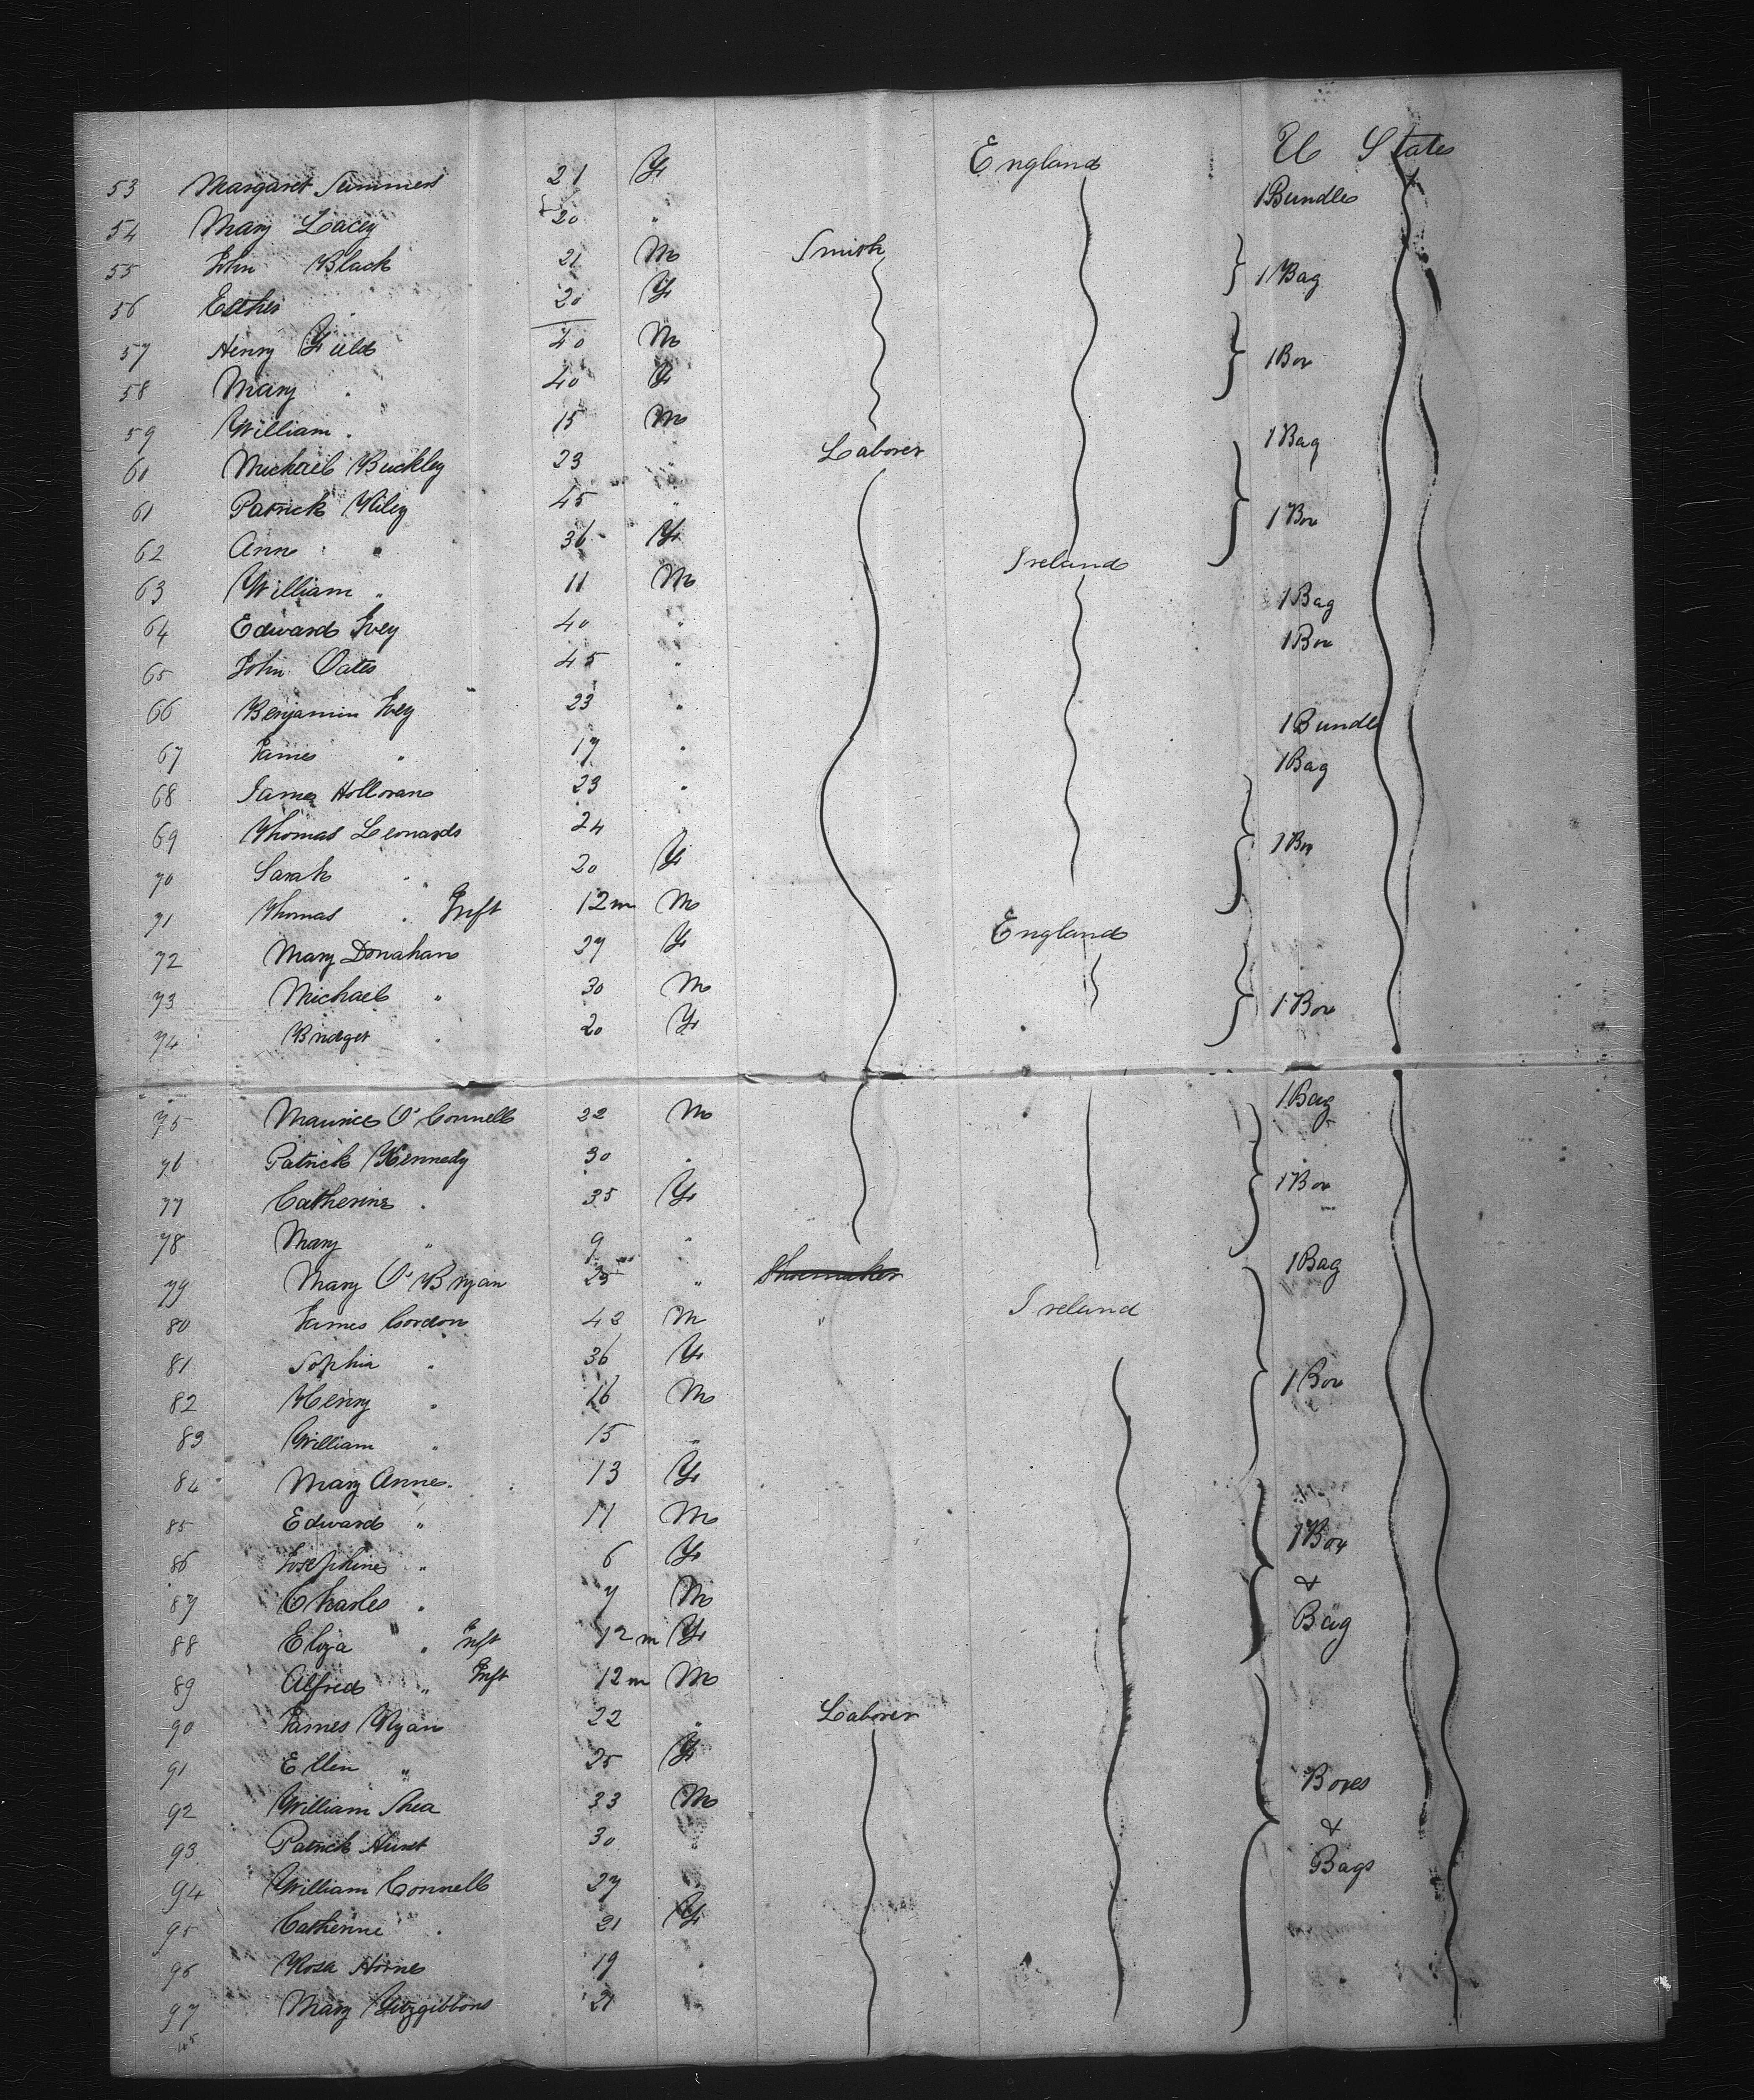 England U States
53 Margaret Summers 21 F 1 Bundle
54 Mary Lacey 20 "
55 John Black 21 M Smith 1 Bag
56 Esther " 20 F
57 Henry Field 40 M 1 Box
58 Mary " 40 F
59 William " 15 M
60 Michael Buckley 23 " Laborer 1 Bag
61 Patrick Kiley 45 " 1 Box
62 Ann " 36 F
63 William " 11 M Ireland
64 Edward Ivey 40 " 1 Bag
65 John Oates 45 " 1 Box
66 Benjamin Ivey 23 "
67 James " 17 " 1 Bundle
68 James Holloran 23 " 1 Bag
69 Thomas Leonard 24 " 1 Box
70 Sarah " 20 F
71 Thomas " Inft 12m M
72 Mary Donahan 27 F England
73 Michael " 30 M 1 Box
74 Bridget " 20 F
75 Maurice O'Connell 22 M 1 Bag
76 Patrick Kennedy 30 "
77 Catherine " 35 F 1 Box
78 Mary " 9 "
79 Mary O'Bryan 25 " Shoemaker 1 Bag
80 James Gordon 42 M " Ireland
81 Sophia " 36 F
82 Henry " 16 M 1 Box
83 William " 15 "
84 Mary Anne " 13 F
85 Edward " 11 M
86 Josephine " 6 F 1 Box
87 Charles " 7 M &
88 Eliza " Inft 12m F Bag
89 Alfred " Inft 12m M
90 James Ryan 22 " Laborer
91 Ellen " 25 F
92 William Shea 33 M Boxes
93 Patrick Hunt 30 " &
94 William Connell 27 " Bags
95 Catherine " 21 F
96 Rosa Horne 19 "
97 Mary Fitzgibbons 21 "